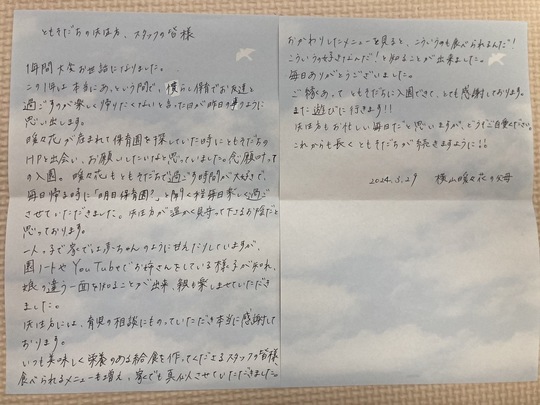 ともそだちの先生方、スタッフの皆様
1年間大変お世話になりました。
この1年は本当にあっという間で、慣らし保育でお友達と
過ごすのが楽しく帰りたくないと言った日が昨日の事のように
思い出します。
咲々花が産まれて保育園を探していた時にともそだちの
HPと出会い、お願いしたいなと思っていました。念願叶って
の入園。咲々花もともそだちで過ごす時間が大好きで、
毎日帰る時に「明日保育園?」と聞く程毎日楽しく過ご
させていただきました。先生方が温かく見守って下さるお陰だと
思っております。
一人っ子で家では赤ちゃんのように甘えたりしていますが、
園ノートやYouTubeでお姉さんをしている様子が知れ、
娘の違う一面を知ることが出来、親も楽しませていただき
ました。
先生方には、育児の相談にものっていただき本当に感謝して
おります。
いつも美味しく栄養のある給食を作ってくださるスタッフの皆様
食べられるメニューも増え、家でも真似させていただきました。
おかわりしたメニューを見ると、こういうのも食べられるんだ!
こういうの好きなんだ!と知ることが出来ました。
毎日ありがとうございました。
ご縁あって、ともそだちに入園できて、とても感謝しております。
また遊びに行きます!!
先生方もお忙しい毎日だと思いますが、どうぞご自愛ください。
これからも長くともそだちが続きますように!!
2024.3.29 横山咲々花の父母